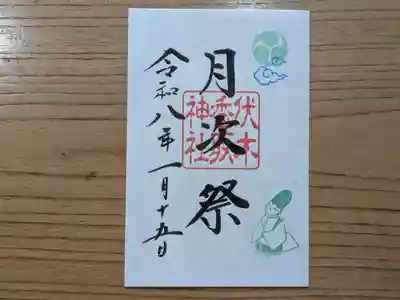 月次祭
令和八年一月十五日
伏木
香取
神社